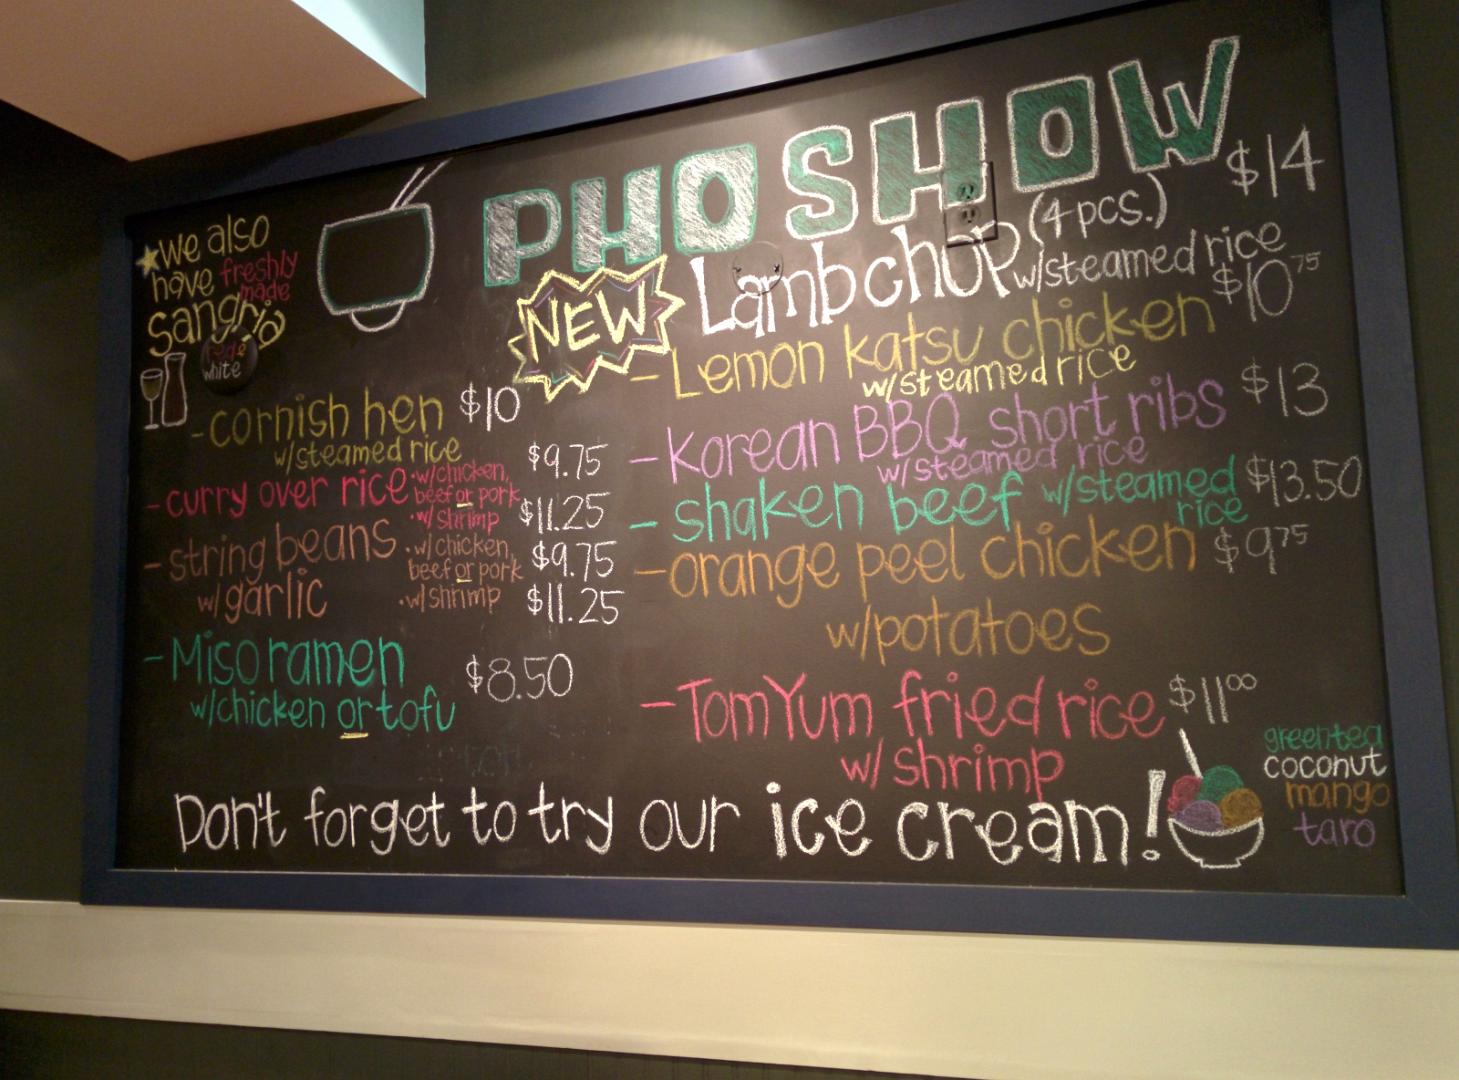 PHO SHOW
★we also
have freshly
made
sangria
red &
white
-cornish hen $10
w/steamed rice
-curry over rice •w/chicken, $9.75
beef or pork
•w/shrimp $11.25
-string beans •w/chicken, $9.75
beef or pork
w/garlic •w/shrimp $11.25
-Miso ramen $8.50
w/chicken or tofu
NEW Lambchop (4 pcs.) $14
w/steamed rice
-Lemon katsu chicken $10.75
w/steamed rice
-Korean BBQ short ribs $13
w/steamed rice
-shaken beef w/steamed $13.50
rice
-orange peel chicken $9.75
w/potatoes
-TomYum fried rice $11.00
w/shrimp
Don't forget to try our ice cream!
greentea
coconut
mango
taro